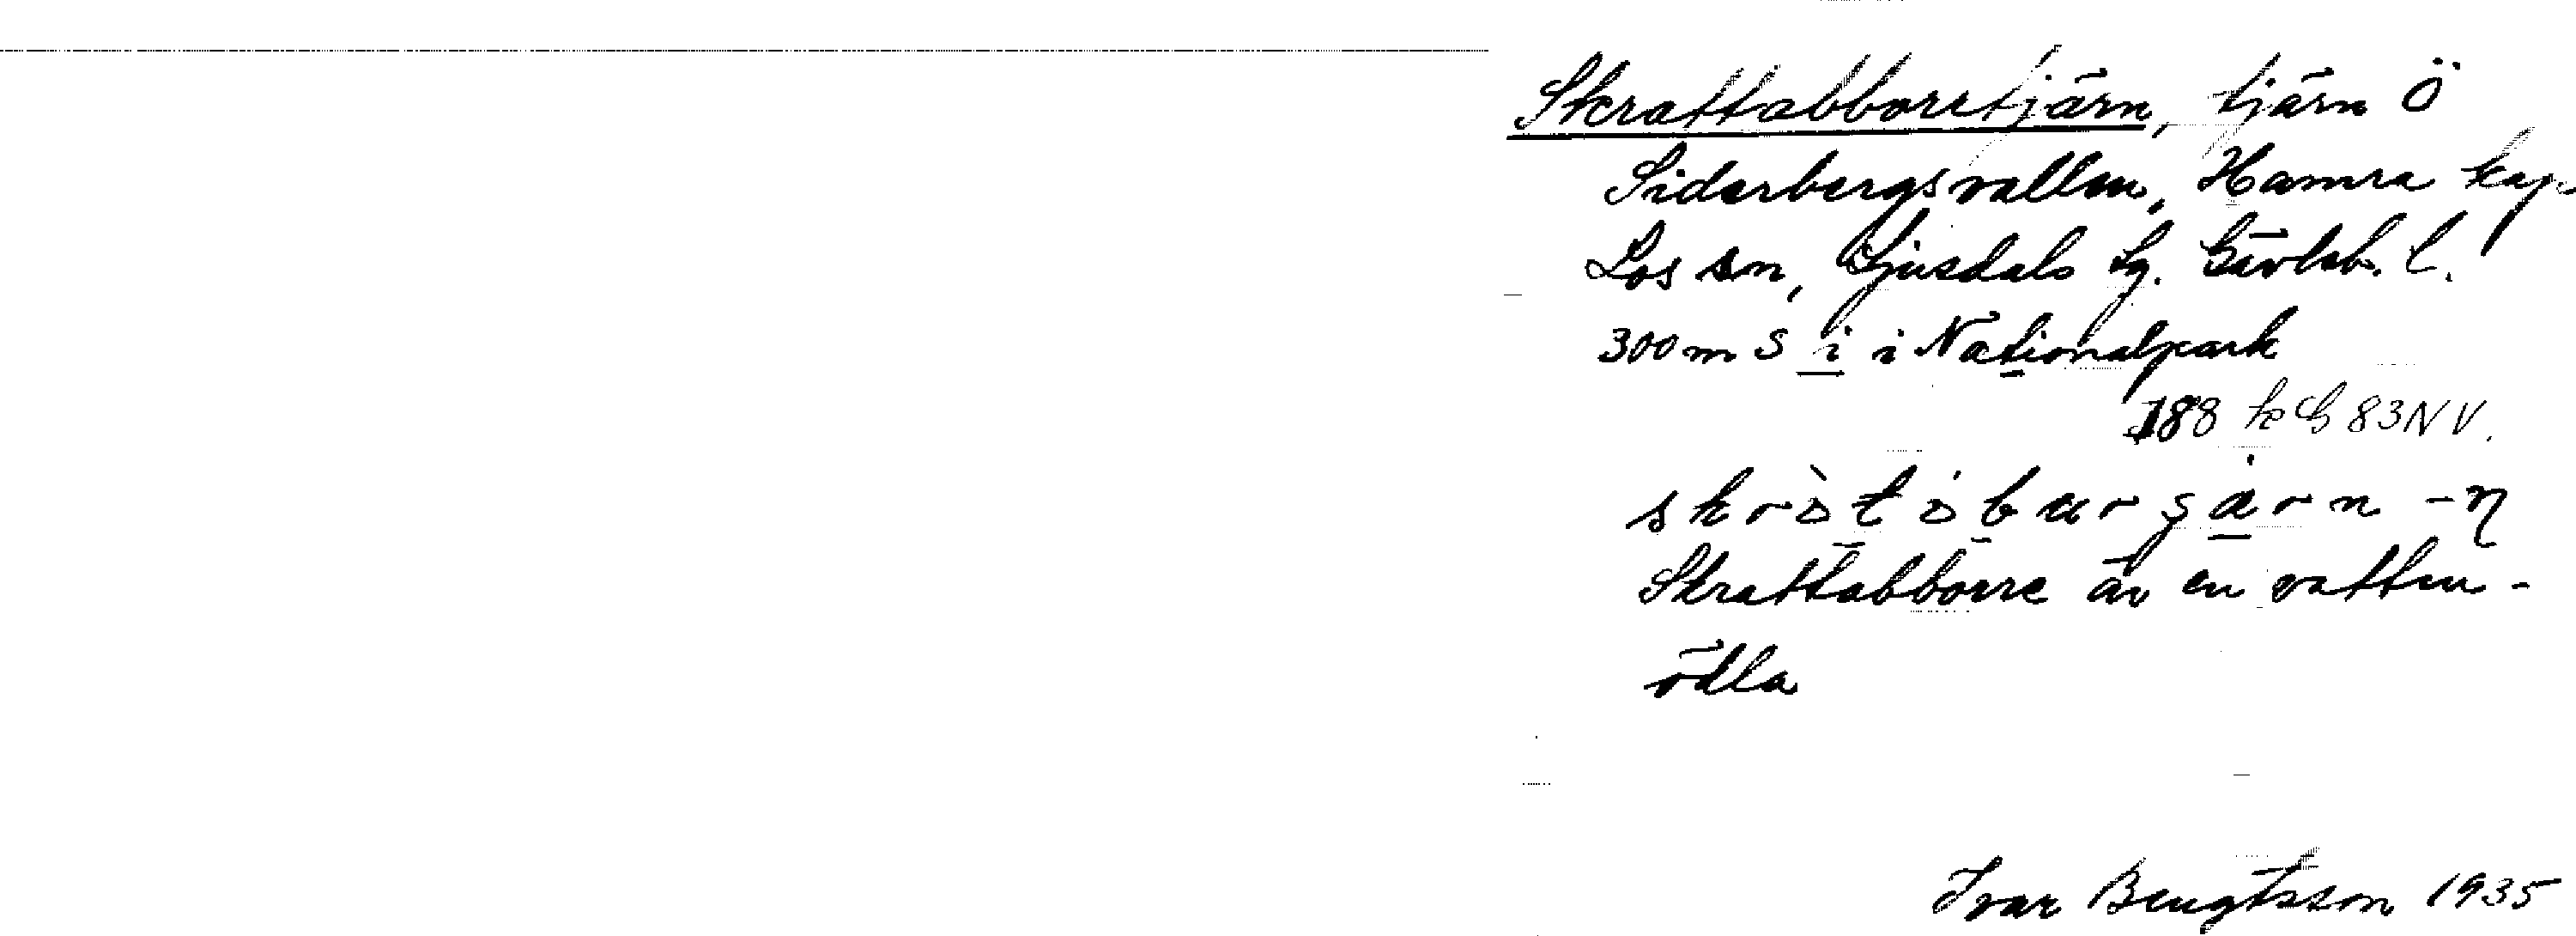 Skrattabborrtjärn, tjärn Ö
Siderbergsvallen, Hamra kap
Los sn, Ljusdals tg. Gävleb. l.
300 m S i i Nationalpark
188 kb 83NV.
Skrattabborre är en vatten-
ödla
Ivar Bengtsson 1935